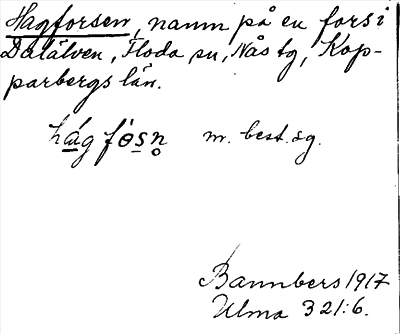 Hagforsen, namn på en fors i
Dalälven, Floda sn, Nås tg, Kop-
parbergs län.
hág fósn m. best. sg.
Bannbers 1917
Ulma 321:6.